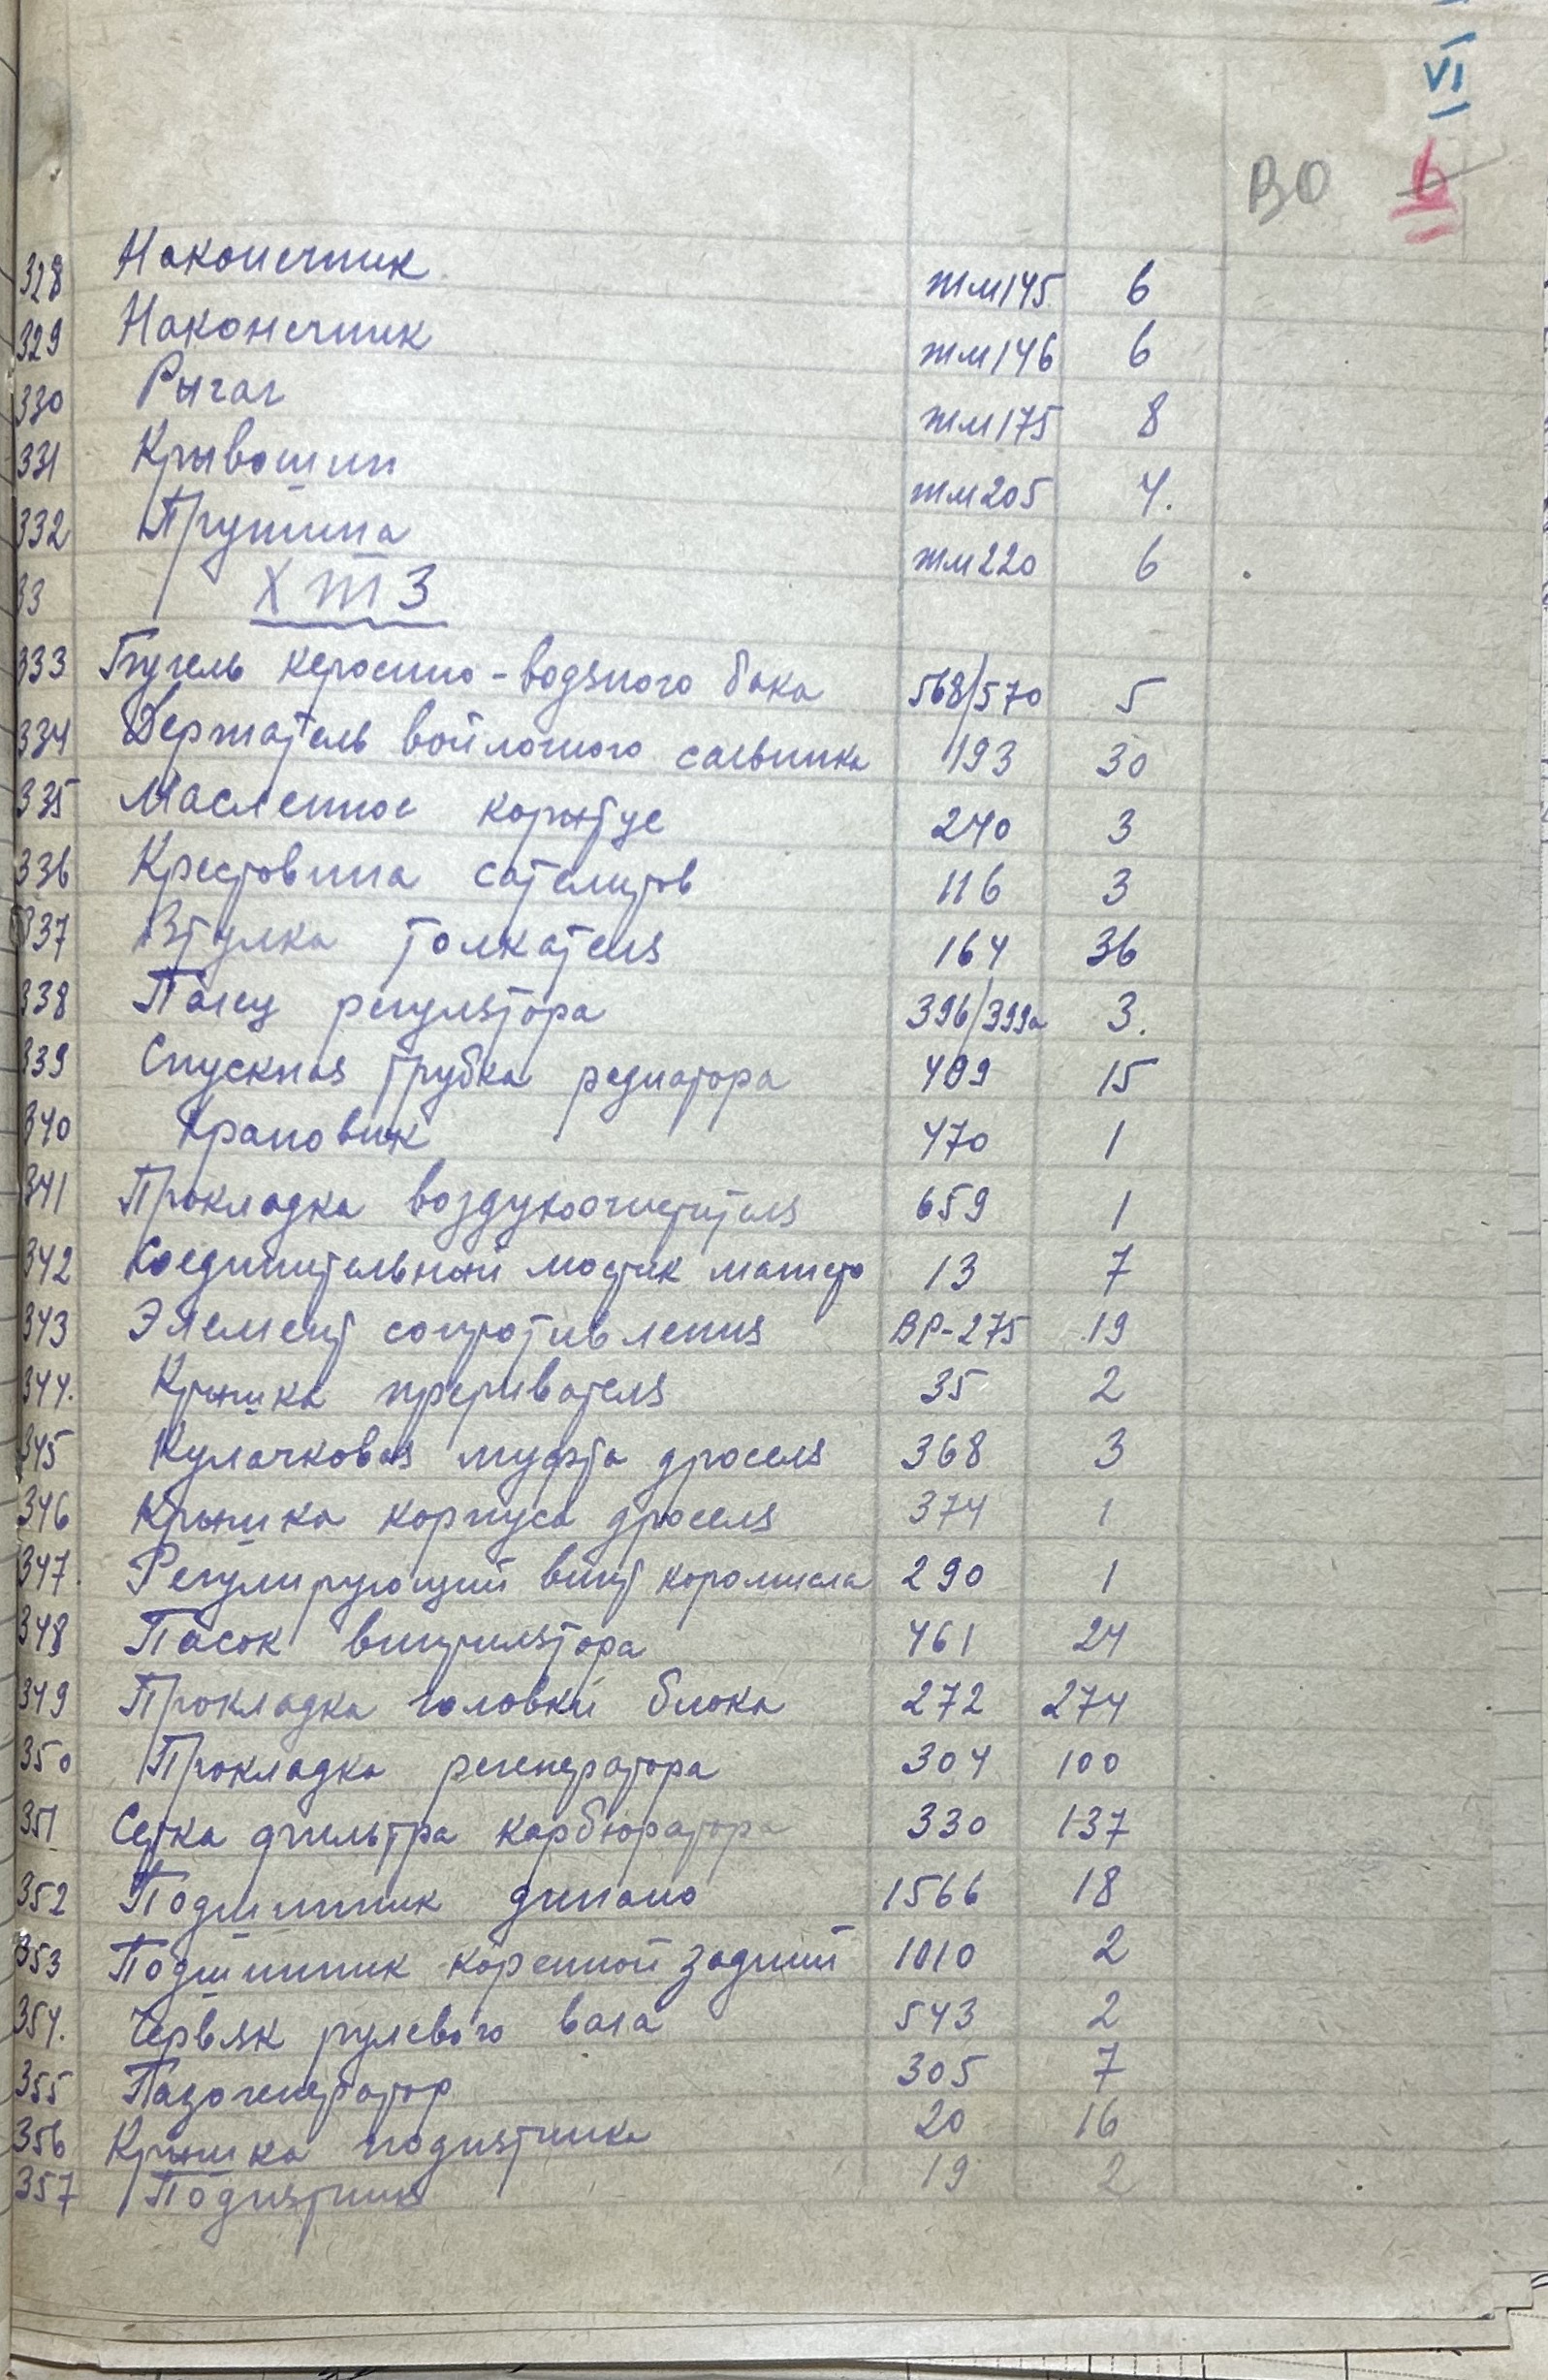 VI
ВО 6
328 Наконечник тм145 6
329 Наконечник тм146 6
330 Рычаг тм175 8
331 Кривошип тм205 4.
332 Пружина тм220 6
33 ХТЗ
333 Бугель керосино-водяного бака 568/570 5
334 Держатель войлочного сальника 193 30
335 Масленное корытце 240 3
336 Крестовина сателитов 116 3
337 Втулка толкателя 164 36
338 Палец регулятора 396/399а 3.
339 Спускная трубка редиатора 409 15
340 Храповик 470 1
341 Прокладка воздухоочистителя 659 1
342 Соединительный мостик магнето 13 7
343 Элемент сопротивления ВР-275 19
344. Крышка преривателя 35 2
345 Кулачковая муфта дроселя 368 3
346 Крышка корпуса дроселя 374 1
347. Регулирующий винт коромысла 290 1
348 Пасок вентилятора 461 24
349 Прокладка головки блока 272 274
350 Прокладка регенератора 304 100
351 Сетка фильтра карбюратора 330 137
352 Подшипник динамо 1566 18
353 Подшипник коренной задний 1010 2
354. Червяк рулевого вала 543 2
355 Газогенератор 305 7
356 Крышка подпятника 20 16
357 Подпятник 19 2